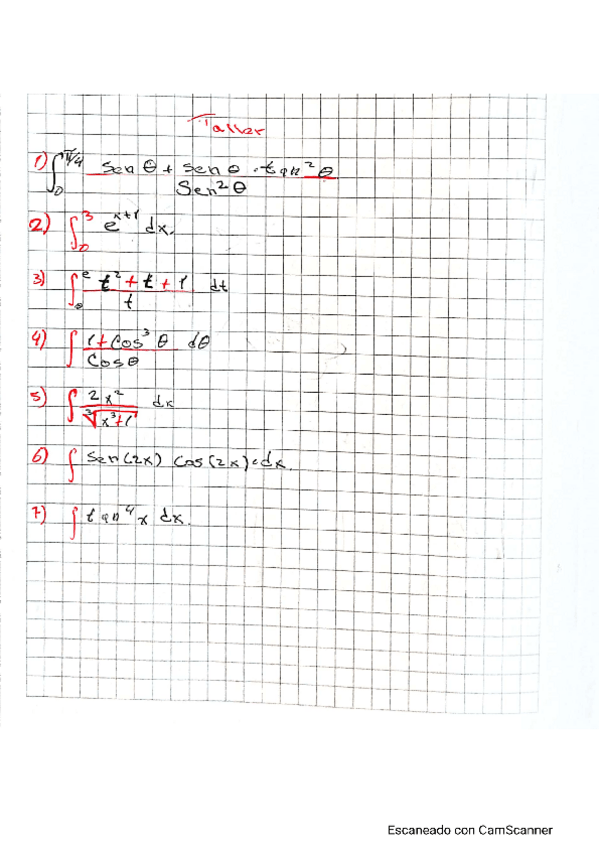 Taller
1) ∫₀^π/4 (Sen θ + sen θ · tan² θ) / Sen² θ
2) ∫₀³ e^(x+1) dx.
3) ∫₀^e (t² + t + 1) / t dt
4) ∫ (1 + Cos³ θ) / Cos θ dθ
5) ∫ 2x² / ³√(x³+1) dx
6) ∫ Sen(2x) Cos(2x) · dx.
7) ∫ tan⁴ x dx.
Escaneado con CamScanner